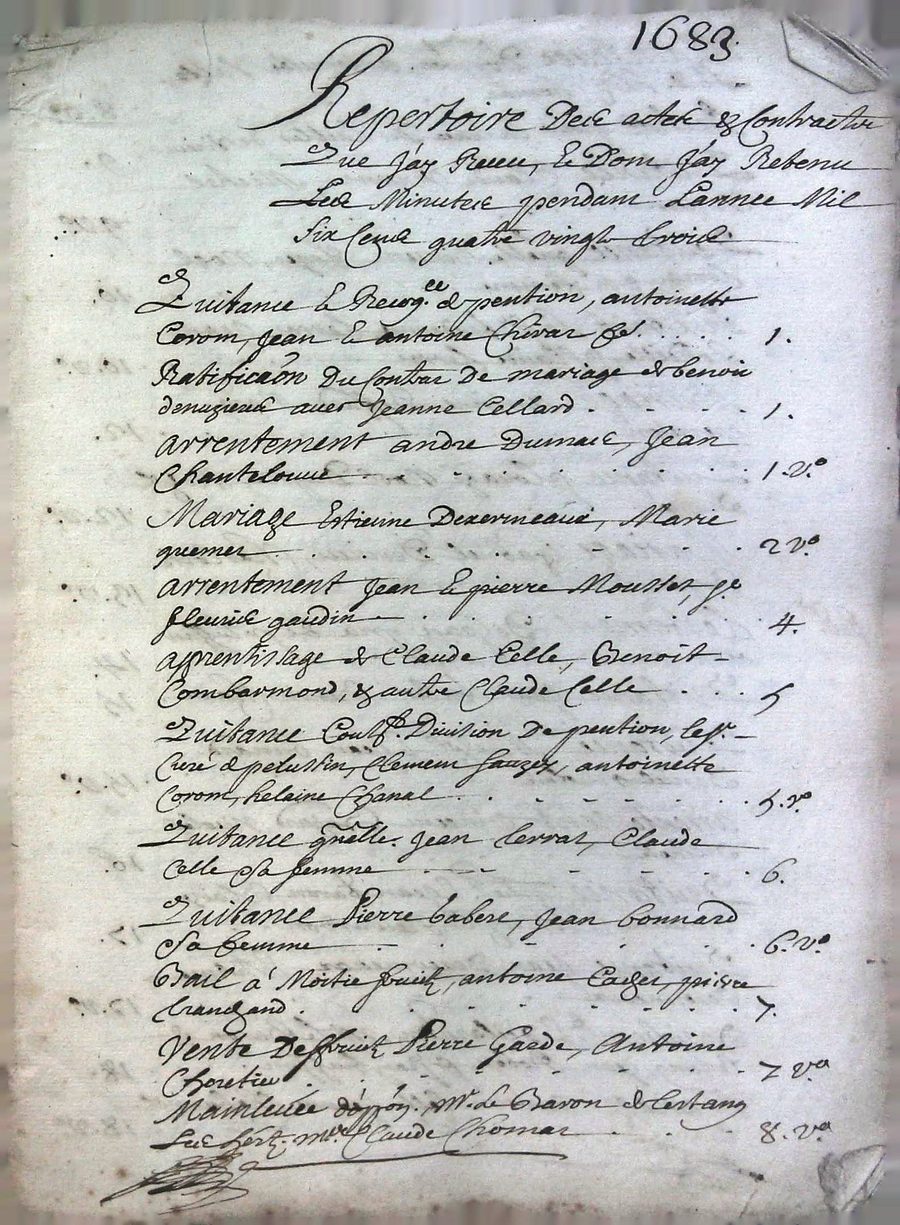 1683.
Repertoire Des actes & Contractz
Que J'ay Receu, & Dont J'ay Retenu
Les Minutes pendant Lannee Mil
six Cens quatre vingtz trois
Quitance & Recog.ce de pention, antoinette
Corom, Jean & antoine Chirat 1.
Ratificaõn Du Contrat De mariage de benoit
denuzieres avec Jeanne Cellard 1.
arrentement andre Dumas, Jean
Chantelouve 1. v.o
Mariage Estienne Dexermeaux, Marie
quemet 2 v.o
arrentement Jean & pierre Mousset, p.r
fleuris gaudin 4.
apprentissage de Claude Celle, Benoit
Combarmond, & autre Claude Celle 5
Quitance Division De pention, le sr.
Curé de pelussin, Clement antoinette
Corom, helaine Chanal 5. v.o
Quitance gñalle. Jean Claude
Celle sa femme 6.
Quitance Pierre Jean bonnard
sa femme 6. v.o
Bail à Moitie fruitz, antoine pierre
7.
Vente Des fruitz Pierre Garde, Antoine
Choretier 7 v.o
Mainlevée M.r Le Baron de Lestang
Claude Chomat 8. v.o